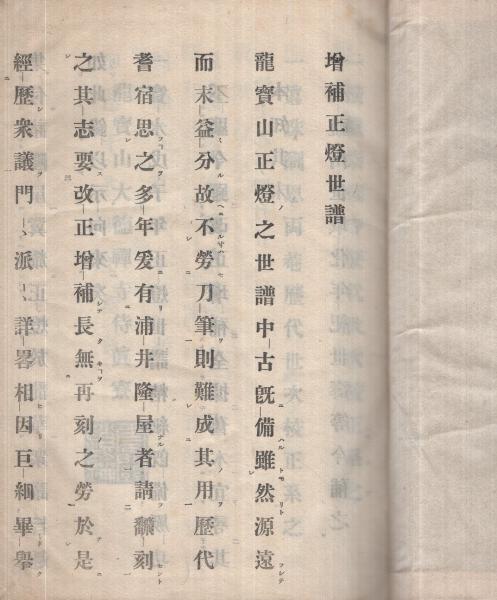 增補正燈世譜
龍寶山正燈之世譜中古既備雖然源遠
而末益分故不勞刀筆則難成其用歷代
耆宿思之多年爰有浦井隆屋者請飜刻
之其志要改正增補長無再刻之勞於是
經歷衆議門〻派〻詳畧相因巨細畢擧